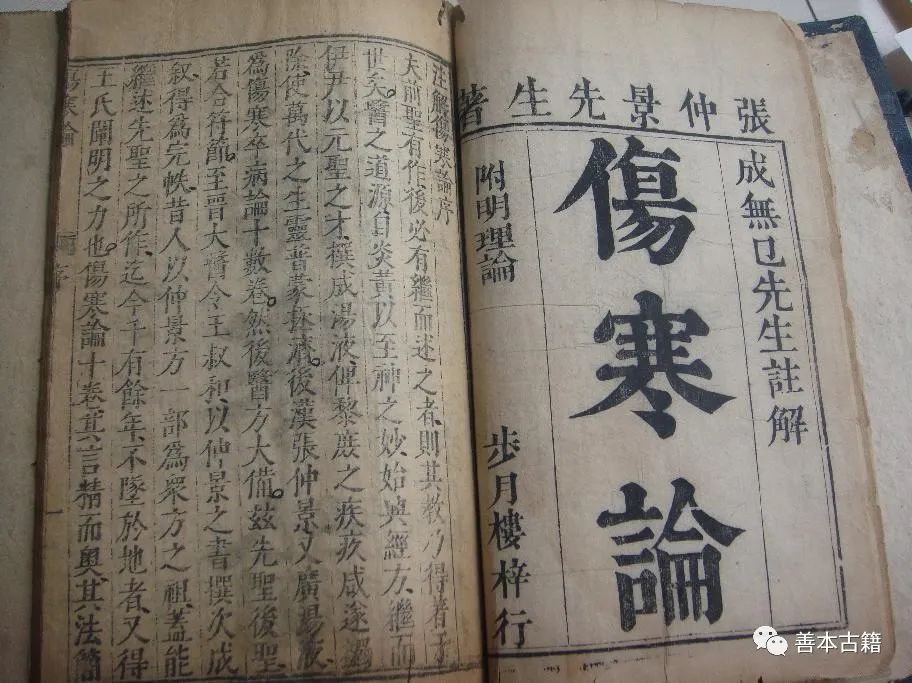 張仲景先生著
成無已先生註解
傷寒論
附明理論
步月樓梓行
注解傷寒論序
夫前聖有作後必有繼而述之者則其教乃得著于
世矣醫之道源自炎黃以至神之妙始興經方繼而
伊尹以元聖之才撰成湯液俾黎庶之疾疚咸遂蠲
除使萬代之生靈普蒙拯濟後漢張仲景又廣湯液
為傷寒卒病論十數卷然後醫方大備茲先聖後聖
若合符節至晉大醫令王叔和以仲景之書撰次成
叙得為完帙昔人以仲景方一部為眾方之祖蓋能
繼述先聖之所作迄今千有餘年不墜於地者又得
王氏闡明之力也傷寒論十卷其言精而奧其法簡
傷寒論
序
一
善本古籍